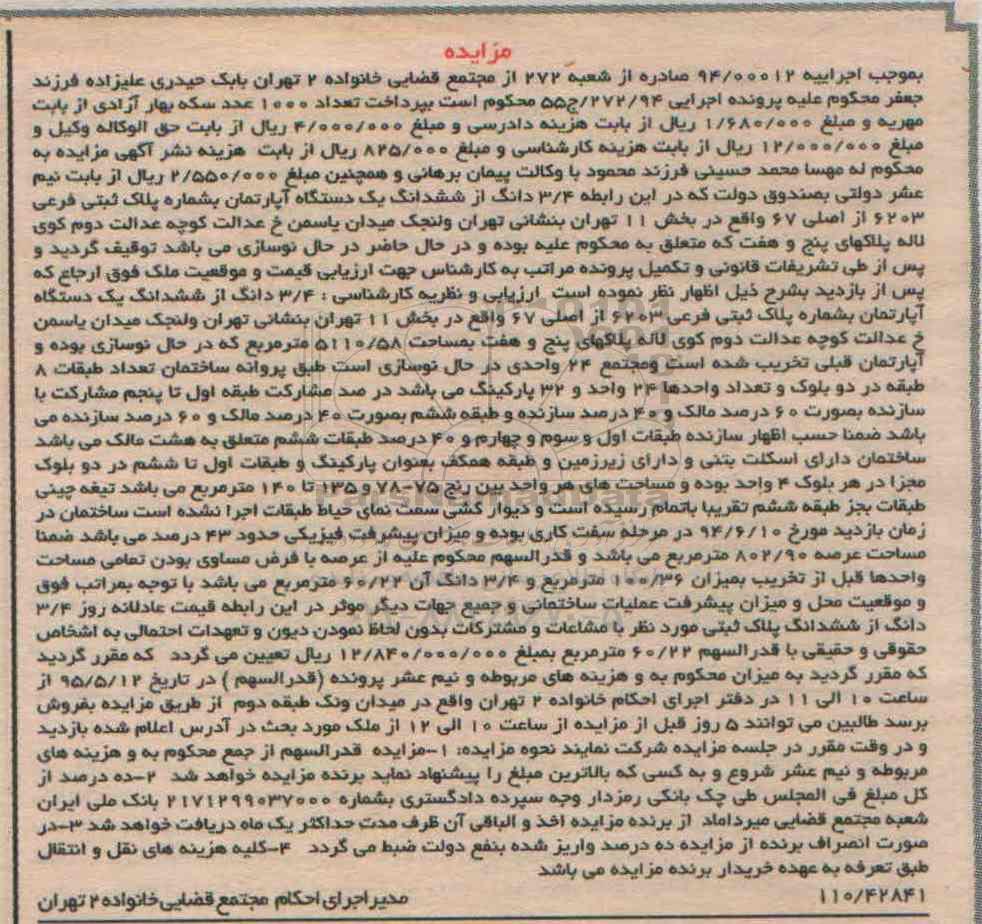 مزایده
بموجب اجراییه ۹۴/۰۰۰۱۲ صادره از شعبه ۲۷۲ از مجتمع قضایی خانواده ۲ تهران بابک حیدری علیزاده فرزند
جعفر محکوم علیه پرونده اجرایی ۲۷۲/۹۴/ج۵۵ محکوم است بپرداخت تعداد ۱۰۰۰ عدد سکه بهار آزادی از بابت
مهریه و مبلغ ۱/۶۸۰/۰۰۰ ریال از بابت هزینه دادرسی و مبلغ ۴/۰۰۰/۰۰۰ ریال از بابت حق الوکاله وکیل و
مبلغ ۱۲/۰۰۰/۰۰۰ ریال از بابت هزینه کارشناسی و مبلغ ۸۲۵/۰۰۰ ریال از بابت هزینه نشر آگهی مزایده به
محکوم له مهسا محمد حسینی فرزند محمود با وکالت پیمان برهانی و همچنین مبلغ ۲/۵۵۰/۰۰۰ ریال از بابت نیم
عشر دولتی بصندوق دولت که در این رابطه ۳/۴ دانگ از ششدانگ یک دستگاه آپارتمان بشماره پلاک ثبتی فرعی
۶۲۰۳ از اصلی ۶۷ واقع در بخش ۱۱ تهران بنشانی تهران ولنجک میدان یاسمن خ عدالت کوچه عدالت دوم کوی
لاله پلاکهای پنج و هفت که متعلق به محکوم علیه بوده و در حال حاضر در حال نوسازی می باشد توقیف گردید و
پس از طی تشریفات قانونی و تکمیل پرونده مراتب به کارشناس جهت ارزیابی قیمت و موقعیت ملک فوق ارجاع که
پس از بازدید بشرح ذیل اظهار نظر نموده است ارزیابی و نظریه کارشناسی : ۳/۴ دانگ از ششدانگ یک دستگاه
آپارتمان بشماره پلاک ثبتی فرعی ۶۲۰۳ از اصلی ۶۷ واقع در بخش ۱۱ تهران بنشانی تهران ولنجک میدان یاسمن
خ عدالت کوچه عدالت دوم کوی لاله پلاکهای پنج و هفت بمساحت ۵۱۱۰/۵۸ مترمربع که در حال نوسازی بوده و
آپارتمان قبلی تخریب شده است ومجتمع ۲۴ واحدی در حال نوسازی است طبق پروانه ساختمان تعداد طبقات ۸
طبقه در دو بلوک و تعداد واحدها ۲۴ واحد و ۳۲ پارکینگ می باشد در صد مشارکت طبقه اول تا پنجم مشارکت با
سازنده بصورت ۶۰ درصد مالک و ۴۰ درصد سازنده و طبقه ششم بصورت ۴۰ درصد مالک و ۶۰ درصد سازنده می
باشد ضمنا حسب اظهار سازنده طبقات اول و سوم و چهارم و ۴۰ درصد طبقات ششم متعلق به هشت مالک می باشد
ساختمان دارای اسکلت بتنی و دارای زیرزمین و طبقه همکف بعنوان پارکینگ و طبقات اول تا ششم در دو بلوک
مجزا در هر بلوک ۴ واحد بوده و مساحت های هر واحد بین رنج ۷۵-۷۸ و ۱۳۵ تا ۱۴۰ مترمربع می باشد تیغه چینی
طبقات بجز طبقه ششم تقریبا باتمام رسیده است و دیوار کشی سمت نمای حیاط طبقات اجرا نشده است ساختمان در
زمان بازدید مورخ ۹۴/۶/۱۰ در مرحله سفت کاری بوده و میزان پیشرفت فیزیکی حدود ۴۳ درصد می باشد ضمنا
مساحت عرصه ۸۰۲/۹۰ مترمربع می باشد و قدرالسهم محکوم علیه از عرصه با فرض مساوی بودن تمامی مساحت
واحدها قبل از تخریب بمیزان ۱۰۰/۳۶ مترمربع و ۳/۴ دانگ آن ۶۰/۲۲ مترمربع می باشد با توجه بمراتب فوق
و موقعیت محل و میزان پیشرفت عملیات ساختمانی و جمیع جهات دیگر موثر در این رابطه قیمت عادلانه روز ۳/۴
دانگ از ششدانگ پلاک ثبتی مورد نظر با مشاعات و مشترکات بدون لحاظ نمودن دیون و تعهدات احتمالی به اشخاص
حقوقی و حقیقی با قدرالسهم ۶۰/۲۲ مترمربع بمبلغ ۱۲/۸۴۰/۰۰۰/۰۰۰ ریال تعیین می گردد که مقرر گردید
که مقرر گردید به میزان محکوم به و هزینه های مربوطه و نیم عشر پرونده (قدرالسهم ) در تاریخ ۹۵/۵/۱۲ از
ساعت ۱۰ الی ۱۱ در دفتر اجرای احکام خانواده ۲ تهران واقع در میدان ونک طبقه دوم از طریق مزایده بفروش
برسد طالبین می توانند ۵ روز قبل از مزایده از ساعت ۱۰ الی ۱۲ از ملک مورد بحث در آدرس اعلام شده بازدید
و در وقت مقرر در جلسه مزایده شرکت نمایند نحوه مزایده: ۱-مزایده قدرالسهم از جمع محکوم به و هزینه های
مربوطه و نیم عشر شروع و به کسی که بالاترین مبلغ را پیشنهاد نماید برنده مزایده خواهد شد ۲-ده درصد از
کل مبلغ فی المجلس طی چک بانکی رمزدار وجه سپرده دادگستری بشماره ۲۱۷۱۲۹۹۰۳۷۰۰۰ بانک ملی ایران
شعبه مجتمع قضایی میرداماد از برنده مزایده اخذ و الباقی آن ظرف مدت حداکثر یک ماه دریافت خواهد شد ۳-در
صورت انصراف برنده از مزایده ده درصد واریز شده بنفع دولت ضبط می گردد ۴-کلیه هزینه های نقل و انتقال
طبق تعرفه به عهده خریدار برنده مزایده می باشد
۱۱۰/۴۲۸۴۱ مدیر اجرای احکام مجتمع قضایی خانواده ۲ تهران